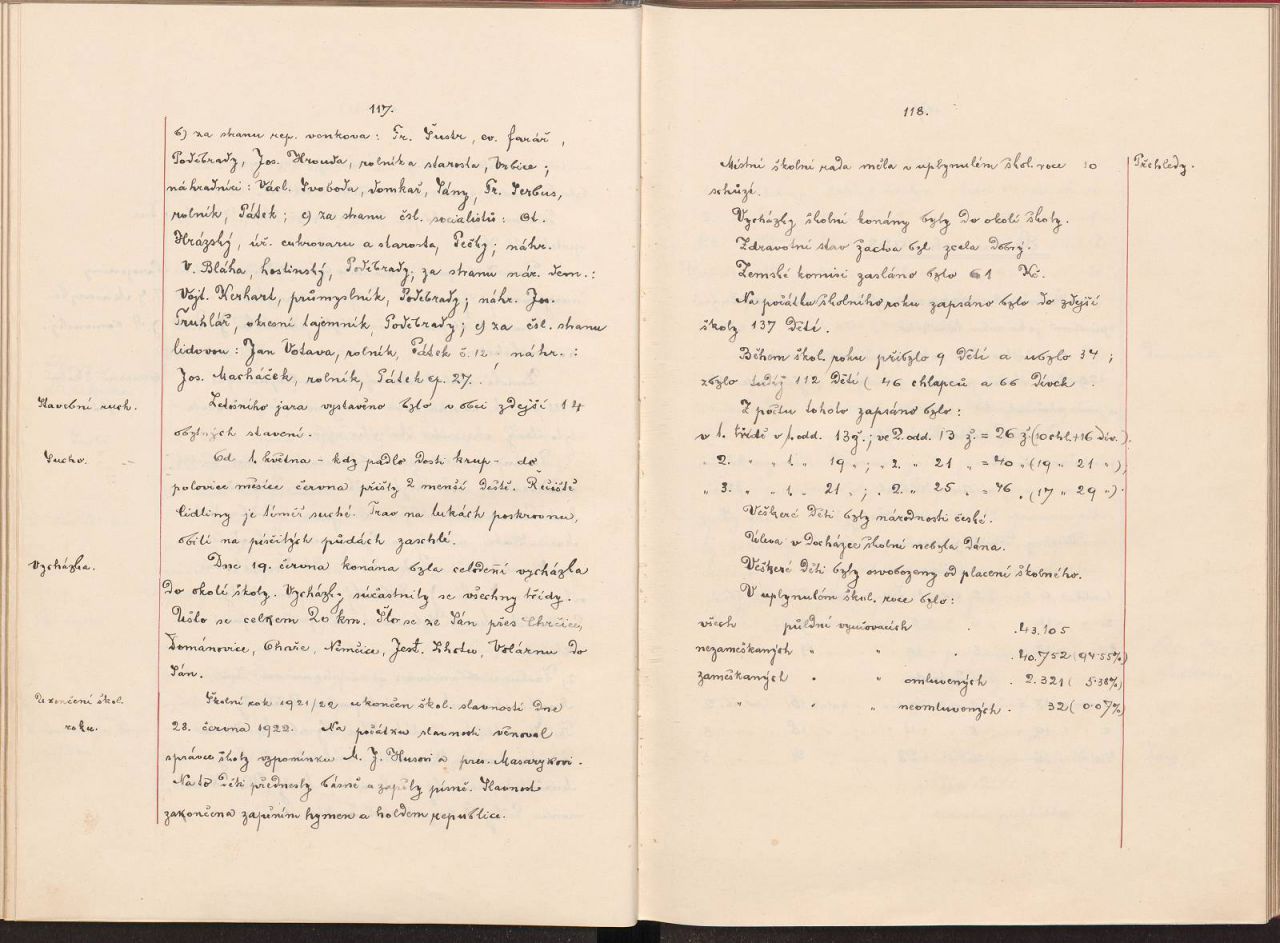 117.
b) za stranu rep. venkova: Fr. Šustr, ev. farář,
Poděbrady, Jos. Hrouda, rolník a starosta, Vrbice;
náhradníci: Václ. Svoboda, domkař, Sány, Fr. Serbus,
rolník, Pátek; c) za stranu čsl. socialistů: Ot.
Hrázský, úř. cukrovaru a starosta, Pečky; náhr.
V. Bláha, hostinský, Poděbrady; za stranu nár. dem.:
Vojt. Kerhart, průmyslník, Poděbrady; náhr. Jos.
Truhlář, okresní tajemník, Poděbrady; e) za čsl. stranu
lidovou: Jan Votava, rolník, Pátek č. 12 náhr.:
Jos. Macháček, rolník, Pátek čp. 27.
Stavební ruch. Letošního jara vystavěno bylo v obci zdejší 14
obytných stavení.
Sucho. Od 1. května - kdy padlo dosti krup - do
polovice měsíce června přišly 2 menší deště. Řečiště
Cidliny je téměř suché. Trav na lukách poskrovnu,
obilí na písčitých půdách zaschlé.
Vycházka. Dne 19. června konána byla celodenní vycházka
do okolí školy. Vycházky súčastnily se všechny třídy.
Ušlo se celkem 20 km. Šlo se ze Sán přes Chrčice,
Dománovice, Choťovice, Němčice, Jest. Lhotu, Volárnu do
Sán.
Ukončení škol. Školní rok 1921/22 ukončen škol. slavností dne
roku. 28. června 1922. Na počátku slavnosti věnoval
správce školy vzpomínku M. J. Husovi a pres. Masarykovi.
Na to děti přednesly básně a zapěly písně. Slavnost
zakončena zapěním hymen a holdem republice.
118.
Místní školní rada měla v uplynulém škol. roce 10 Přehledy.
schůzí.
Vycházky školní konány byly do okolí školy.
Zdravotní stav žactva byl zcela dobrý.
Zemské komisi zasláno bylo 61 Kč.
Na počátku školního roku zapsáno bylo do zdejší
školy 137 dětí.
Během škol. roku přibylo 9 dětí a ubylo 34;
zbylo tudíž 112 dětí (46 chlapců a 66 dívek.
Z počtu tohoto zapsáno bylo:
v 1. třídě v 1. odd. 13 ž.; ve 2. odd. 13 ž. = 26 ž (10 chl. + 16 dív.).
" 2. " " 1. " 19 "; " 2. " 21 " = 40 " (19 " 21 "),
" 3. " " 1. " 21 "; " 2. " 25 " = 46 " (17 " 29 ").
Veškeré děti byly národnosti české.
Úleva v docházce školní nebyla dána.
Veškeré děti byly osvobozeny od placení školného.
V uplynulém škol. roce bylo:
všech půldní vyučovacích . . 43.105
nezameškaných " " . . 40.752 (94.55%)
zameškaných " " omluvených . 2.321 ( 5.38%)
" " " neomluvených . 32 ( 0.07%)